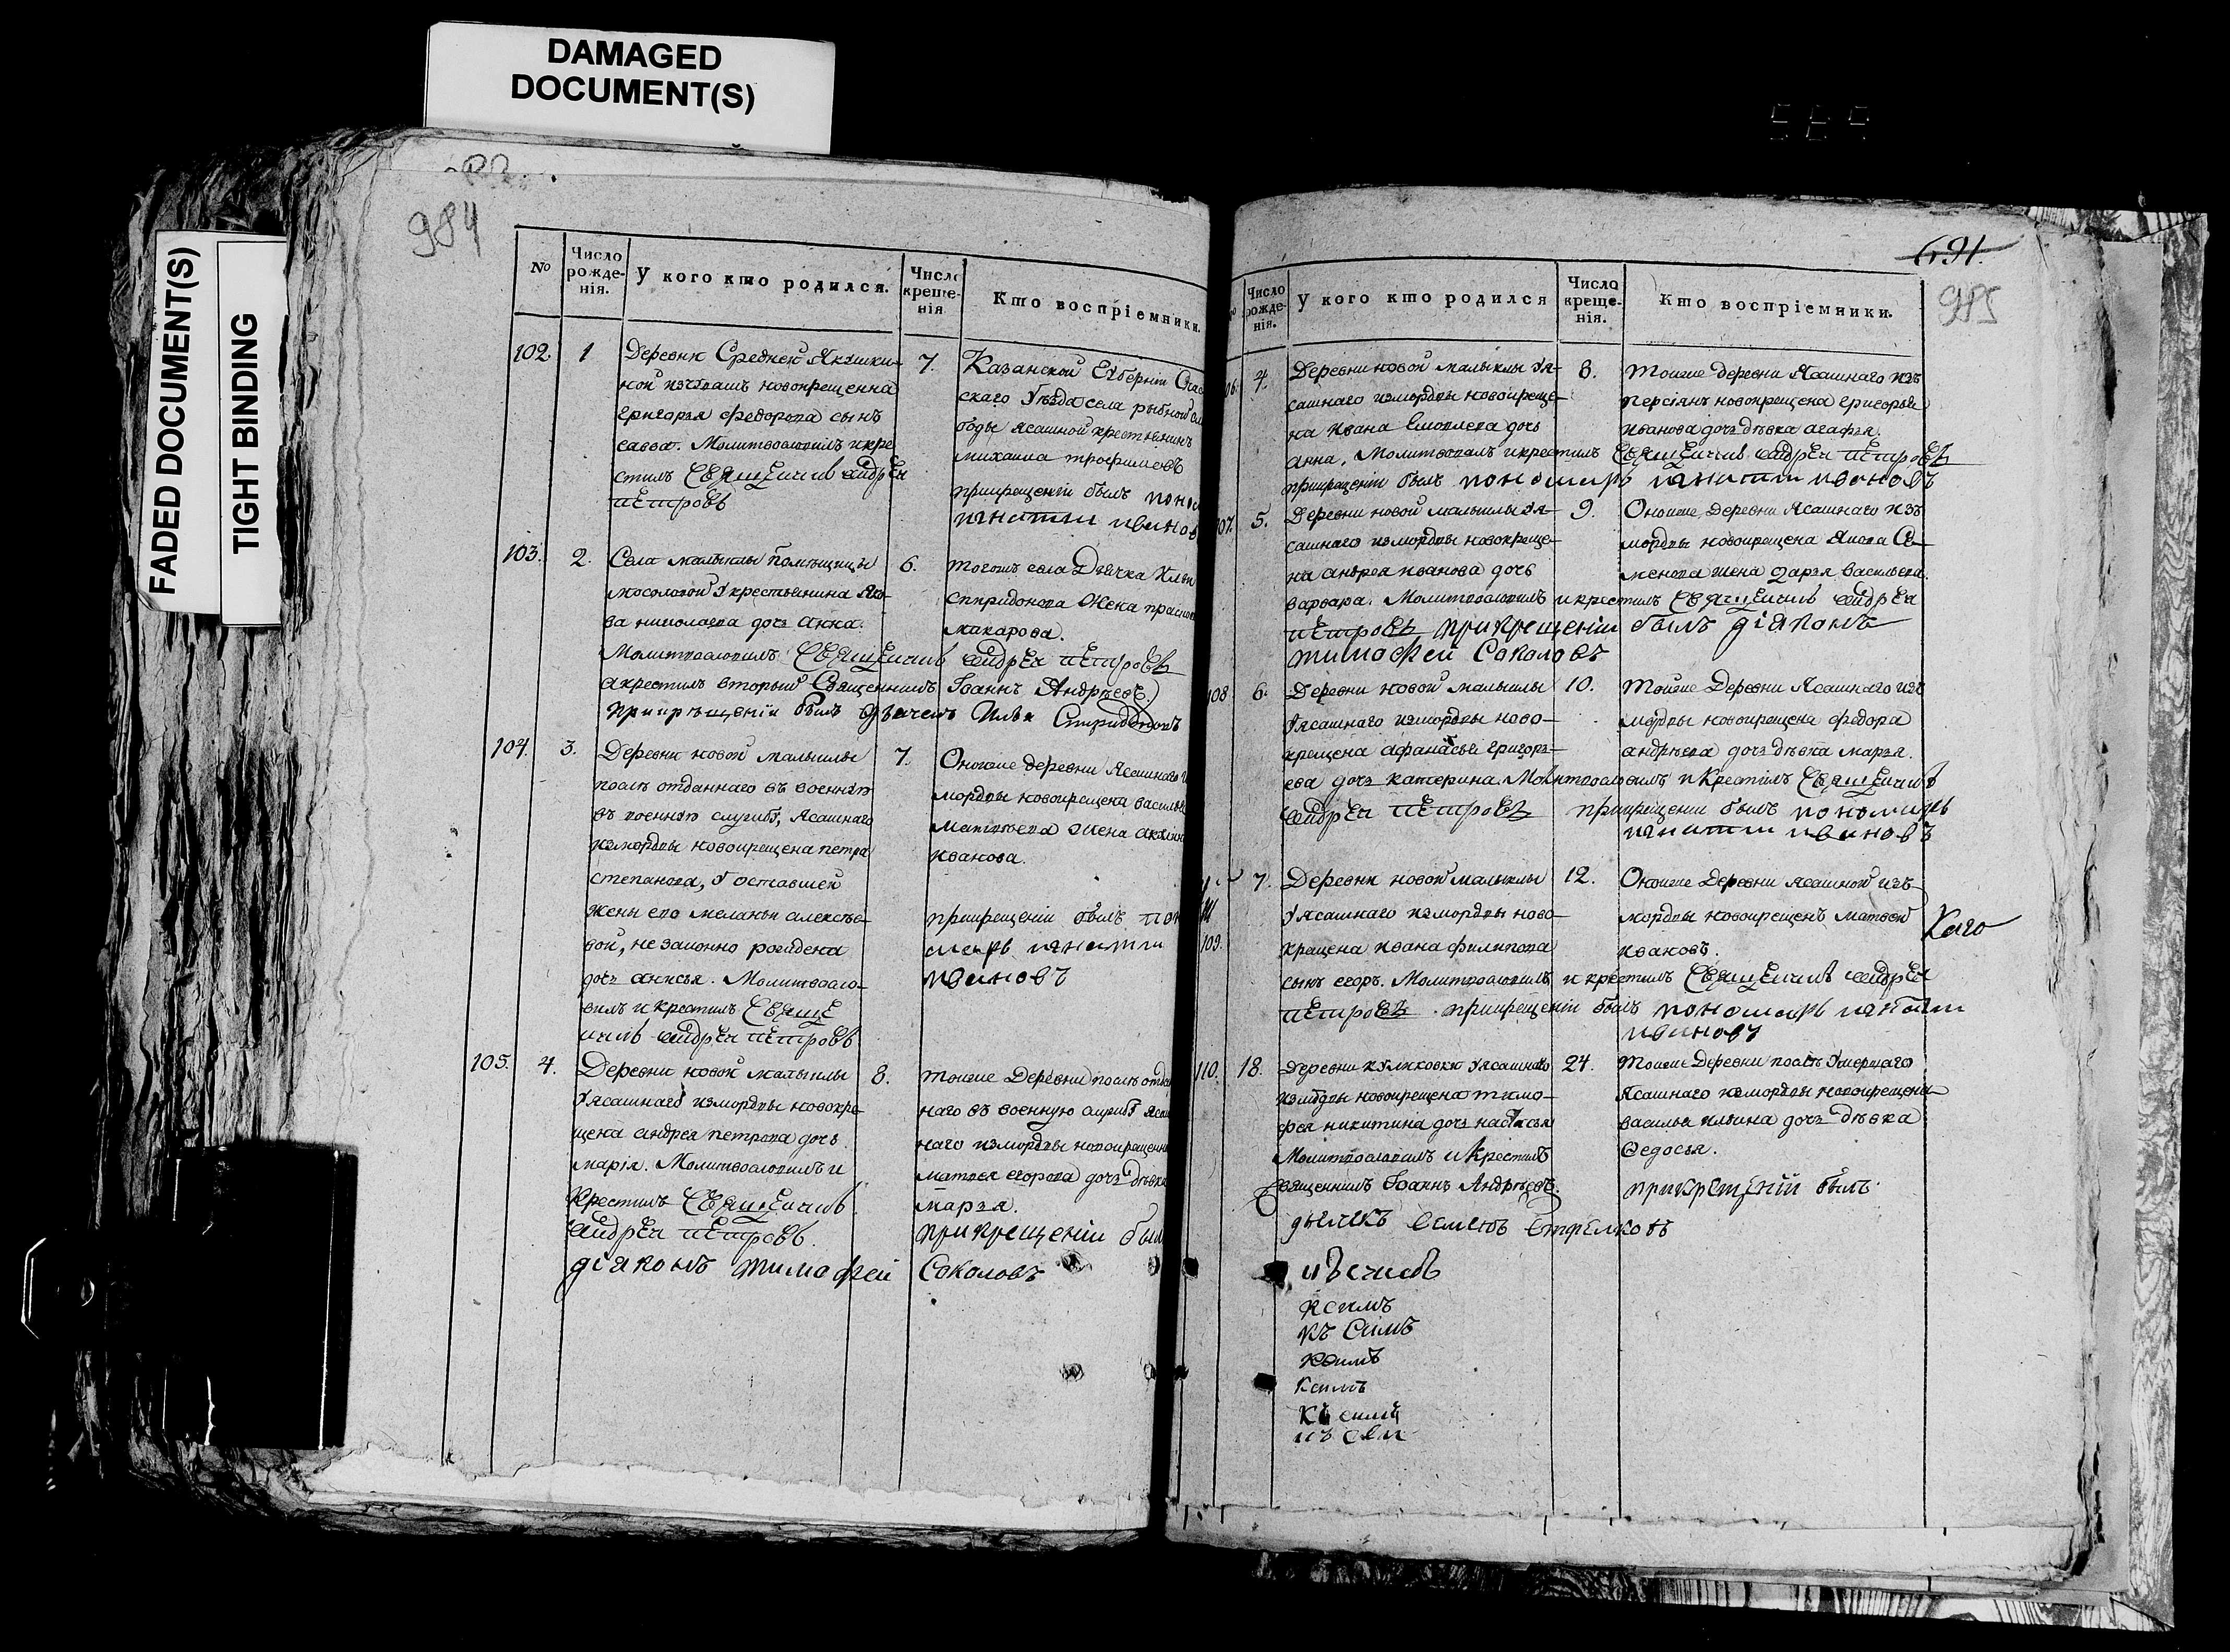 DAMAGED
DOCUMENT(S)
FADED DOCUMENT(S)
TIGHT BINDING
984
№
Число рожде-нія.
У кого кто родился.
Число креще-нія
Кто воспріемники.
102.
1
Деревни Средней Якушки-
ной изчувашъ новокрещенна
григорья федорова сынъ
савва. Молитвословилъ икре
стилъ Священникъ Андрей
Петровъ
7.
Казанской Губерніи Спас
скаго Уѣзда села рыбной сл
боды ясашной крестьянинъ
михаила трофимовъ
прикрещеніи былъ поно
игнатіи ивановъ
103.
2.
Села малыклы помѣщицы
мосоловой Укрестьянина Яко-
ва николаева дочь анна.
Молитвословилъ Священникъ Андрей Петровъ
акрестилъ вторый Священникъ Іоаннъ Андреевъ
прикрѣщеніи былъ дьячекъ Илья Спиридоновъ
6.
тогожъ села Дьячка Ильи
спиридонова Жена
макарова.
104.
3.
Деревни новой малыклы
послѣ отданнаго въ военнꙋю
въ военнꙋю службꙋ, Ясашнаго
измордвы новокрещена петра
степанова, У оставшей
жены его меланьи алексѣе-
вой, не законно рождена
дочь анисья. Молитвосло-
вилъ и крестилъ Свяще
нникъ Андрей Петровъ
7.
Оноже деревни Ясашнаго и
мордвы новокрещена василья
Матвѣева Жена акулина
иванова.
прикрещеніи былъ пон
марь игнатіи
ивановъ
105.
4.
Деревни новой малыклы
Уясашнаго измордвы новокре-
щена андрея петрова дочь
марія. Молитвословилъ и
Крестилъ Священникъ
Андрей Петровъ.
діяконъ тимофей Соколовъ
8.
тоиже Деревни послѣ отдан
наго въ военную службꙋ ясаш
наго измордвы новокрещенна
матвея егорова дочь дѣвка
марья.
прикрещеніи был
691.
985
Число рожде-нія.
У кого кто родился
Число креще-нія.
Кто воспріемники.
4.
Деревни новой малыклы Уя-
сашнаго измордвы новокреще-
на ивана дочь
анна. Молитвословилъ икрестилъ Священникъ Андрей Петровъ
прикращеніи былъ пономарь игнатіи ивановъ
8.
тоиже деревни Ясашнаго изъ
персіянъ новокрещена григорья
иванова дочь дѣвка агафья.
107.
5.
Деревни новой малыклы Уя-
сашнаго измордвы новокреще-
на андрея иванова дочь
варвара. Молитвословилъ икрестилъ Священникъ Андрей
Петровъ прикрещеніи былъ діяконъ
тимофей Соколовъ
9.
Оноиже Деревни Ясашнаго изъ
мордвы новокрещена Якова Се-
менова жена дарья васильева.
108.
6.
Деревни новой малыклы
Уясашнаго измордвы ново-
крещена афанасья григорь-
ева дочь катерина. Молитвословилъ и Крестилъ Священникъ
Андрей Петровъ прикрещеніи былъ пономарь
игнатіи ивановъ
10.
тоиже Деревни Ясашнаго изъ
мордвы новокрещена федора
андрѣева дочь дѣвка марья.
109.
7.
Деревни новой малыклы
Уясашнаго измордвы ново-
крещена ивана филипова
сынъ егоръ. Молитвословилъ и крестилъ Священникъ Андрей
Петровъ. прикрещеніи былъ пономарь игнатіи
ивановъ
12.
Оноиже Деревни ясашной изъ
мордвы новокрещенъ матвей
ивановъ.
110.
18.
Деревни куликовки Уясашнаго
измордвы новокрещена тимо-
фея никитина дочь настасья
Молитвословилъ и Крестилъ
Священникъ Іоаннъ Андреевъ.
дьячекъ Семенъ Стрелковъ
24.
тоиже Деревни послѣ Умершаго
Ясашнаго измордвы новокрещена
василья ильина дочь дѣвка
Ѳедосья.
прикрещеніи былъ
ксимъ
къ Симъ
ксимъ
ксимъ